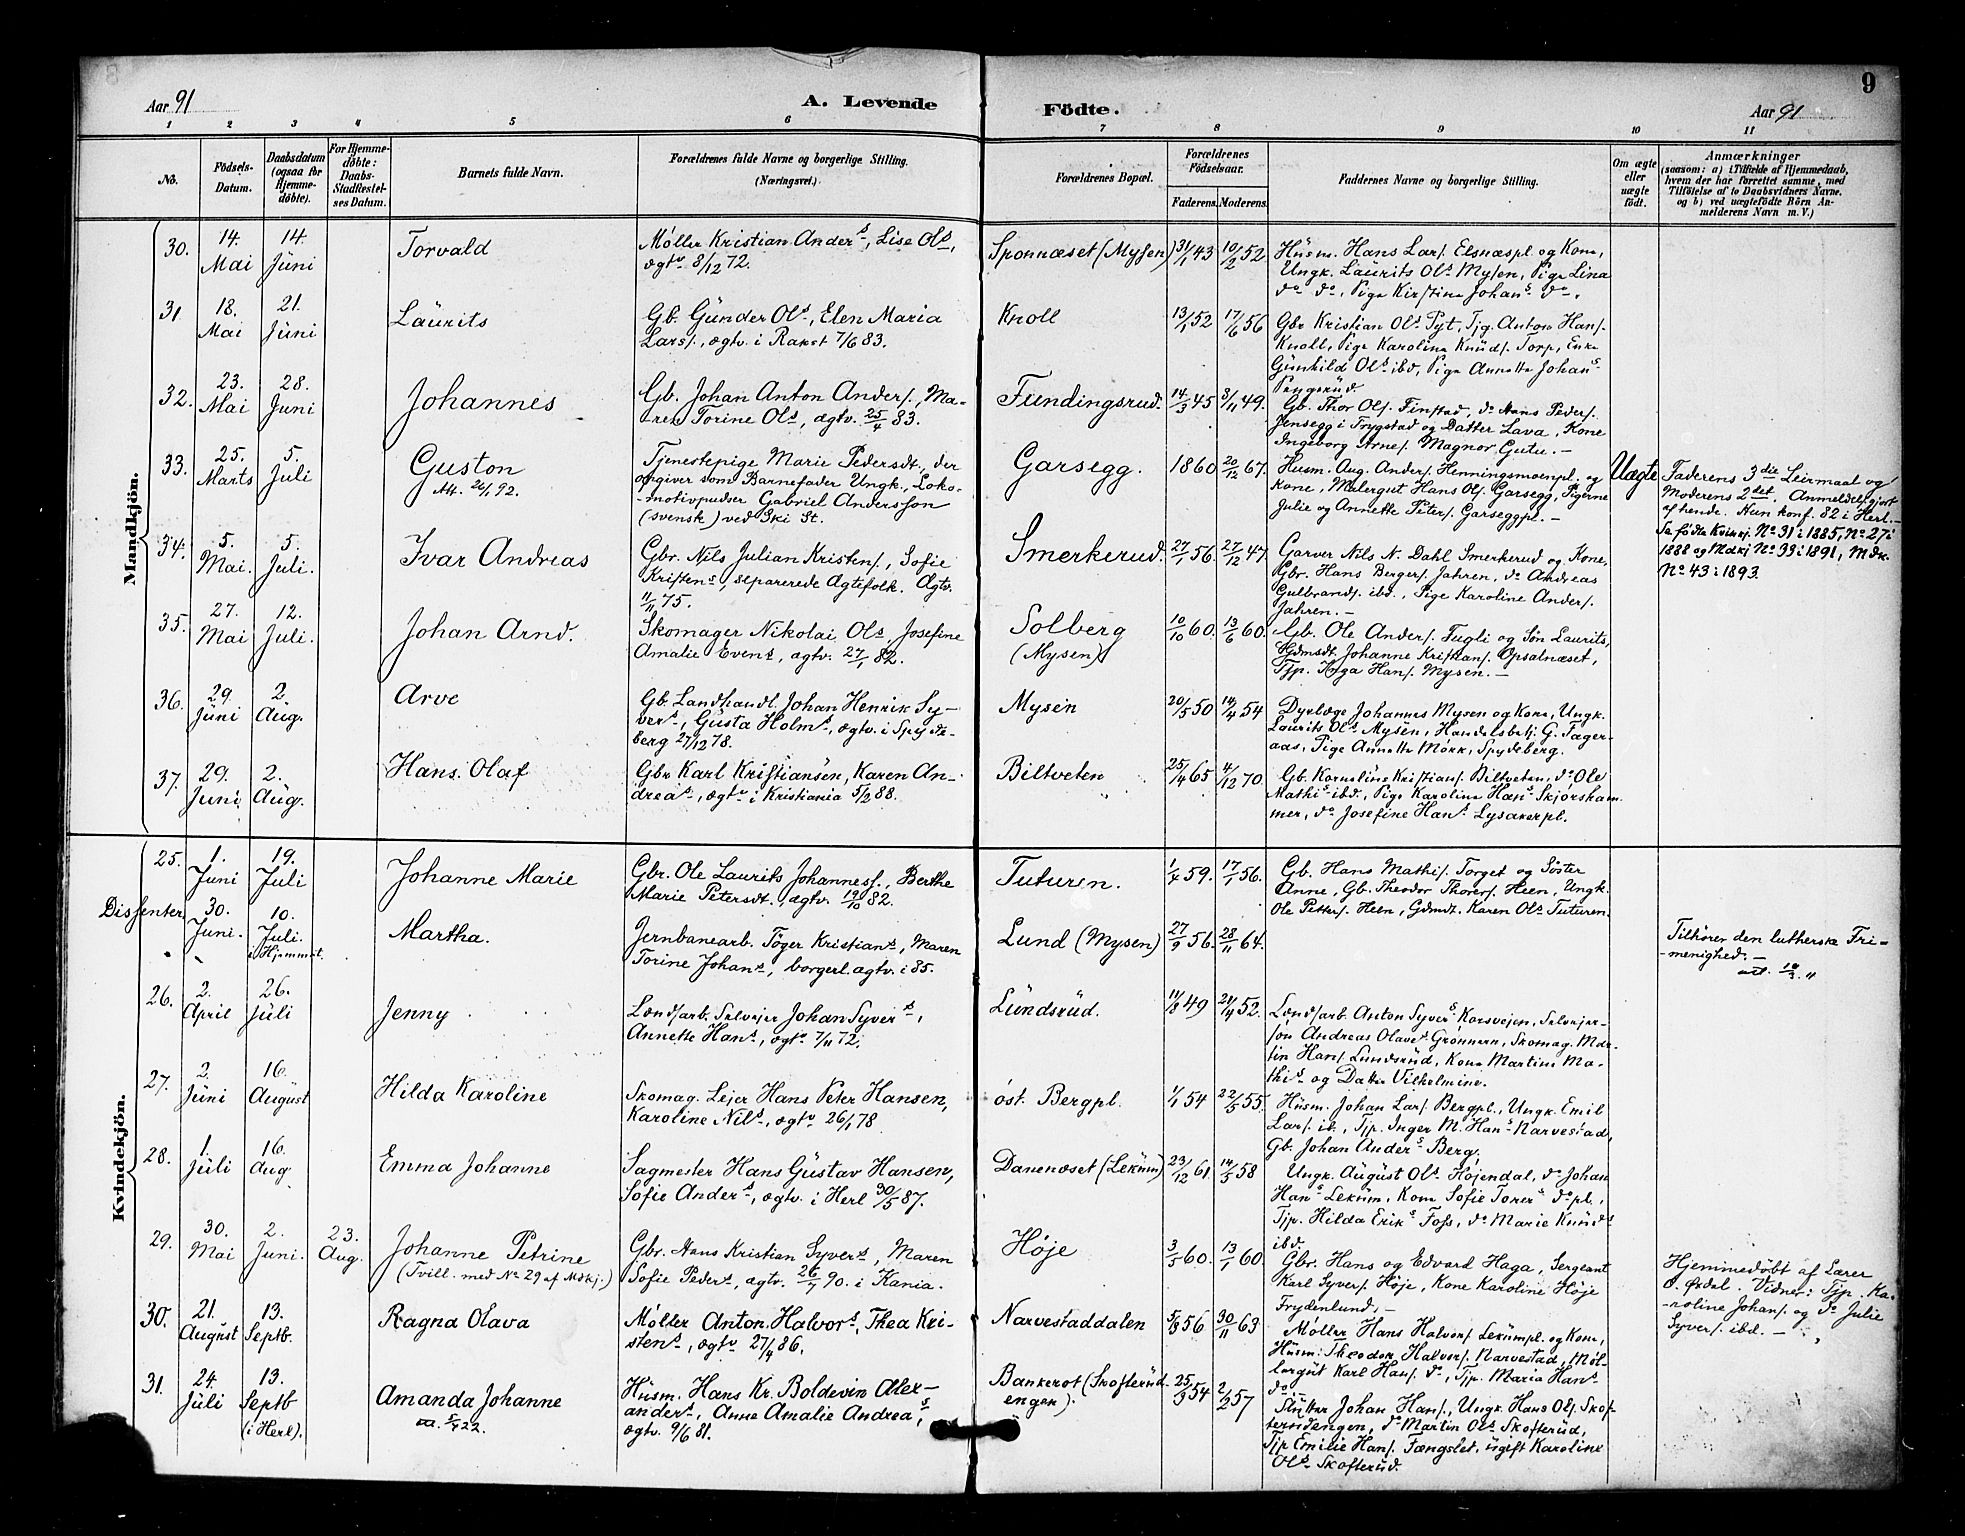 9
Aar 91
A. Levende Födte.
Aar 91
1 2 3 4 5 6 7 8 9 10 11
No.
Födsels-Datum.
Daabsdatum (ogsaa for Hjemme-döbte).
For Hjemme-döbte: Daabs-Stadfæstel-ses Datum.
Barnets fulde Navn.
Forældrenes fulde Navne og borgerlige Stilling.
(Næringsvei.)
Forældrenes Bopæl.
Forældrenes Födselsaar.
Faderens. Moderens.
Faddernes Navne og borgerlige Stilling.
Om ægte eller uægte födt.
Anmærkninger
(saasom: a) i Tilfælde af Hjemmedaab,
hvem der har forrettet samme, med
Tilföielse af to Daabsvidners Navne.
og b) ved uægtefödte Börn An-
melderens Navn m. V.)
Mandkjön.
30. 14. Mai 14. Juni Torvald
Møller Kristian Anders, Lise Ols,
ægtv 8/12 72.
Sponnæset (Mysen) 31/1 43 10/2 52
Husm. Hans Lars. Elsnæspl. og Kone,
Ungk. Laurits Ols Mysen, Pige Lina
do do, Pige Kirstine Johans do.
31 18. Mai 21. Juni Laurits
Gb. Gunder Ols, Elen Maria
Lars., ægtv. i Rakst 7/6 83.
Knoll 13/1 52 17/6 56
Gbr Kristian Ols Pyt, Tjg. Anton Hans.
Knoll, Pige Karolina Knuds. Torp, Enke
Gunhild Ols ibd, Pige Annette Johans
Pengsrud.
32. 23. Mai 28. Juni Johannes
Gb. Johan Anton Anders., Ma-
ren Torine Ols, ægtv. 25/4 83.
Fundingsrud. 14/3 45 3/11 49.
Gb. Thor Ols. Finstad, do Hans Peders.
Jensegg i Trygstad og Datter Lava, Kone
Ingeborg Arnes. Magnor Gutu. —
33. 25. Marts 5. Juli Guston
Att. 26/1 92.
Tjenestepige Marie Pedersdt., der
opgiver som Barnefader Ungk., Loko-
-motivpudser Gabriel Andersson
(svensk) ved Ski St.
Garsegg. 1860 20/12 67.
Husm. Aug. Anders. Henningsmoenpl. og
Kone, Malergut Hans Ols. Garsegg, Pigerne
Julie og Annette Peters. Garseggpl. —
Uægte
Faderens 3die Leirmaal og
Moderens 2det. Anmeldelse gjort
af hende. Hun konf. 82 i Herl. —
Se fødte Kvinkj. No 31 i 1885, No 27 i
1888 og Mdkj No 33 i 1891, Mdk.
No 43 i 1893.
34. 5. Mai. 5. Juli. Ivar Andreas
Gbr. Nils Julian Kristens., Sofie
Kristens, separerede Ægtefolk. Ægtv.
11/11 75.
Smerkerud. 27/1 56. 27/12 47.
Garver Nils N. Dahl Smerkerud og Kone,
Gbr. Hans Bergers. Jahren, do Andreas
Gulbrands. ibd., Pige Karoline Anders.
Jahren. —
35. 27. Mai 12. Juli. Johan Arnd.
Skomager Nikolai Ols, Josefine
Amalie Evens, ægtv. 27/1 82.
Solberg (Mysen) 10/10 60. 13/6 60.
Gb. Ole Anders. Fugli og Søn Laurits,
Gdmsdt. Johanne Kristians. Opsalnæset,
Tjp. Inga Hans. Mysen. —
36. 29. Juni 2. Aug. Arve
Gb. Landhandl. Johan Henrik Sy-
vers, Gusta Holms, ægtv. i Spyde-
berg 27/12 78.
Mysen 20/5 50 14/4 54
Dyrlæge Johannes Mysen og Kone, Ungk.
Laurits Ols Mysen, Handelsbetj. G. Fager-
aas, Pige Annette Mørk, Spydeberg.
37. 29. Juni 2. Aug. Hans Olaf
Gbr Karl Kristiansen, Karen An-
dreas, ægtv i Kristiania 5/12 88.
Biltveten 25/4 65 4/12 70
Gb. Kornelius Kristians. Biltveten, do Ole
Mathis ibd., Pige Karolina Hans Skjørsham-
mer, do Josefine Hans Lysakerpl.
Kvindekjön.
25. 1. Juni 19. Juli Johanne Marie
Gbr. Ole Laurits Johanness., Berthe
Marie Petersdt., ægtv. 19/10 82.
Tuturen. 1/4 59. 17/1 56.
Gb. Hans Mathis. Torget og Søster
Anne, Gb. Theodor Thores. Heen, Ungk.
Ole Petters. Heen, Gdmdt. Karen Ols Tuturen.
Dissenter 30. Juni. 10. Juli. i Hjemmet. Martha.
Jernbanearb. Tøger Kristians, Maren
Torine Johans, borgerl. ægtv. i 85.
Lund (Mysen) 27/9 56. 28/11 64.
Tilhører den lutherske Fri-
-menighed. —
26. 2. April 26. Juli Jenny
Landsarb. Selvejer Johan Syvers,
Annette Hans, ægtv 7/11 72.
Lundsrud. 11/8 49 21/4 52.
Landsarb. Anton Syvers Korsvejen, Selvejer-
søn Andreas Olaves Grønnern, Skomag. Mar-
tin Hans. Lundsrud, Kone Martine Ma-
this og Datter Vilhelmine.
27. 2. Juni 16. August Hilda Karoline
Skomag. Lejer Hans Peter Hansen,
Karoline Nils, ægtv 26/1 78
øst. Bergpl. 1/1 54 22/5 55.
Husm. Johan Lars. Bergpl., Ungk. Emil
Lars. ib., Tjp. Inger M. Hans Narvestad,
Gb. Johan Anders Berg.
28. 1. Juli 16. Aug Emma Johanne
Sagmester Hans Gustav Hansen,
Sofie Anders, ægtv. i Herl 30/5 87.
Danenæset (Lekum) 23/12 61 14/5 58
Ungk. August Ols Højendal, do Johan
Hans Lekum, Kone Sofie Torers do pl.,
Tjp. Hilda Eriks Foss, do Marie Knuds
ibd.
29. 30. Mai 2. Juni. 23. Aug. Johanne Petrine
(Tvill. med No 29 af Mdkj.)
Gbr. Hans Kristian Syvers, Maren
Sofie Peders, ægtv. 26/7 90. i Kania.
Høje 3/5 60. 13/1 60.
Gbr. Hans og Edvard Haga, Sergeant
Karl Syvers. Høje, Kone Karoline Høje
Frydenlund. —
Hjemmedøbt af Lærer
O. Ørdal. Vidner: Tjp. Ka-
-roline Johans. og do Julie
Syvers. ibd. —
30. 21. August 13. Septb. Ragna Olava
Møller Anton Halvors, Thea Kri-
stens, ægtv 27/4 86.
Narvestaddalen 5/8 56 30/11 63
Møller Hans Halvors. Lekumpl. og Kone,
Husm. Theodor Halvors. Narvestad, Møl-
lergut Karl Hans. do, Tjp. Maria Hans
do.
31. 24. Juli 13. Septb (i Herl). Amanda Johanne
Husm. Hans Kr. Boldevin Alex-
anders, Anne Amalie Andreas,
ægtv. 9/6 81.
Bankerot (Skofterud engen). 25/9 54 2/2 57
Slutter Johan Hans., Ungk. Hans Ols. Skof-
terudengen, do Martin Ols Skofterud,
Tjp Emilie Hans. Fængslet, ugift Karoline
Ols Skofterud.